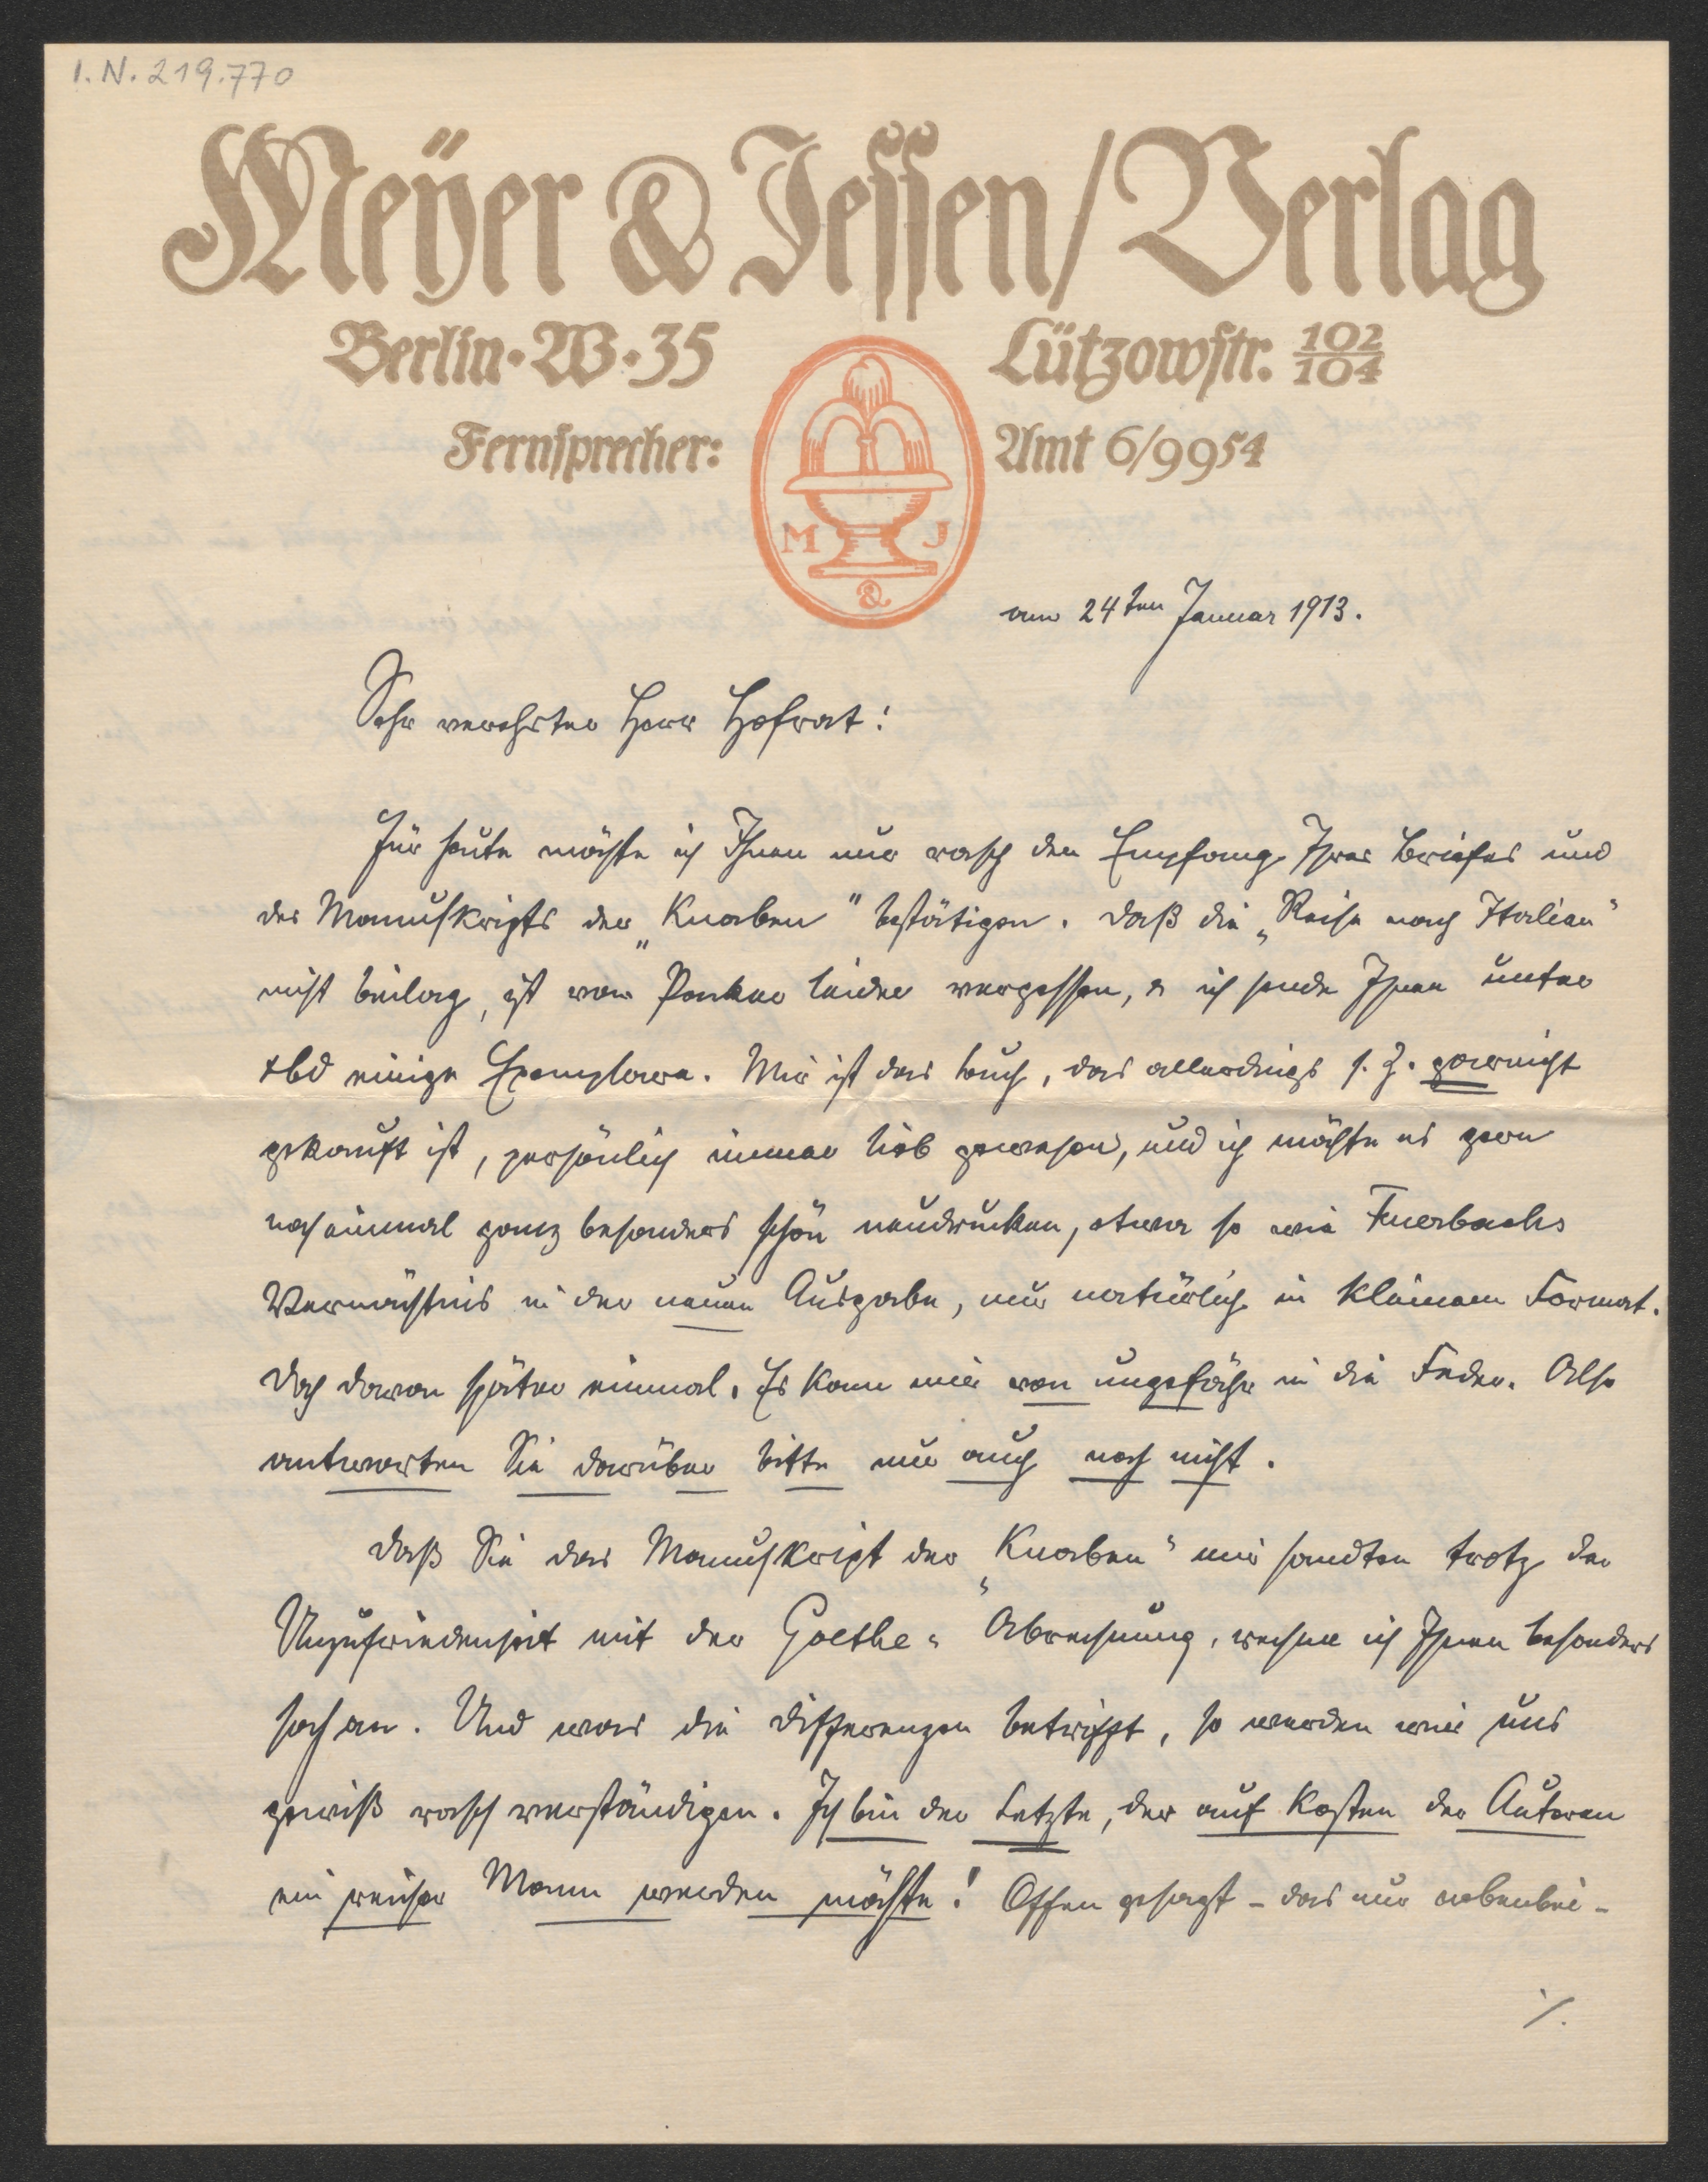 I. N. 219.770
Meÿer & Jessen / Verlag
Berlin • W • 35 Lützowstr. 102/104
Fernsprecher: Amt 6/9954
M J
&
am 24ten Januar 1913.
Sehr verehrter Herr Hofrat:
Für heute möchte ich Ihnen nur rasch den Empfang Ihres Briefes und
des Manuskripts der „Knaben" bestätigen. Daß die „Reise nach Italien"
nicht beilag, ist vom Packer leider vergessen, & ich sende Ihnen unter
xbd einige Exemplare. Mir ist das Buch, das allerdings s. Z. garnicht
gekauft ist, persönlich immer lieb gewesen, und ich möchte es gern
noch einmal ganz besonders schön neudrucken, etwa so wie Feuerbachs
Vermächtnis in der neuen Ausgabe, nur natürlich in kleinem Format.
Doch davon später einmal. Es kam mir von ungefähr in die Feder. Also
antworten Sie darüber bitte nur auch noch nicht.
Daß Sie das Manuskript der „Knaben" mir sandten trotz der
Unzufriedenheit mit der Goethe-Abrechnung, rechne ich Ihnen besonders
hoch an. Und was die Differenzen betrifft, so werden wir uns
gewiß rasch verständigen. Ich bin der Letzte, der auf Kosten der Autoren
ein reicher Mann werden möchte! Offen gesagt – das nur nebenbei –
./.